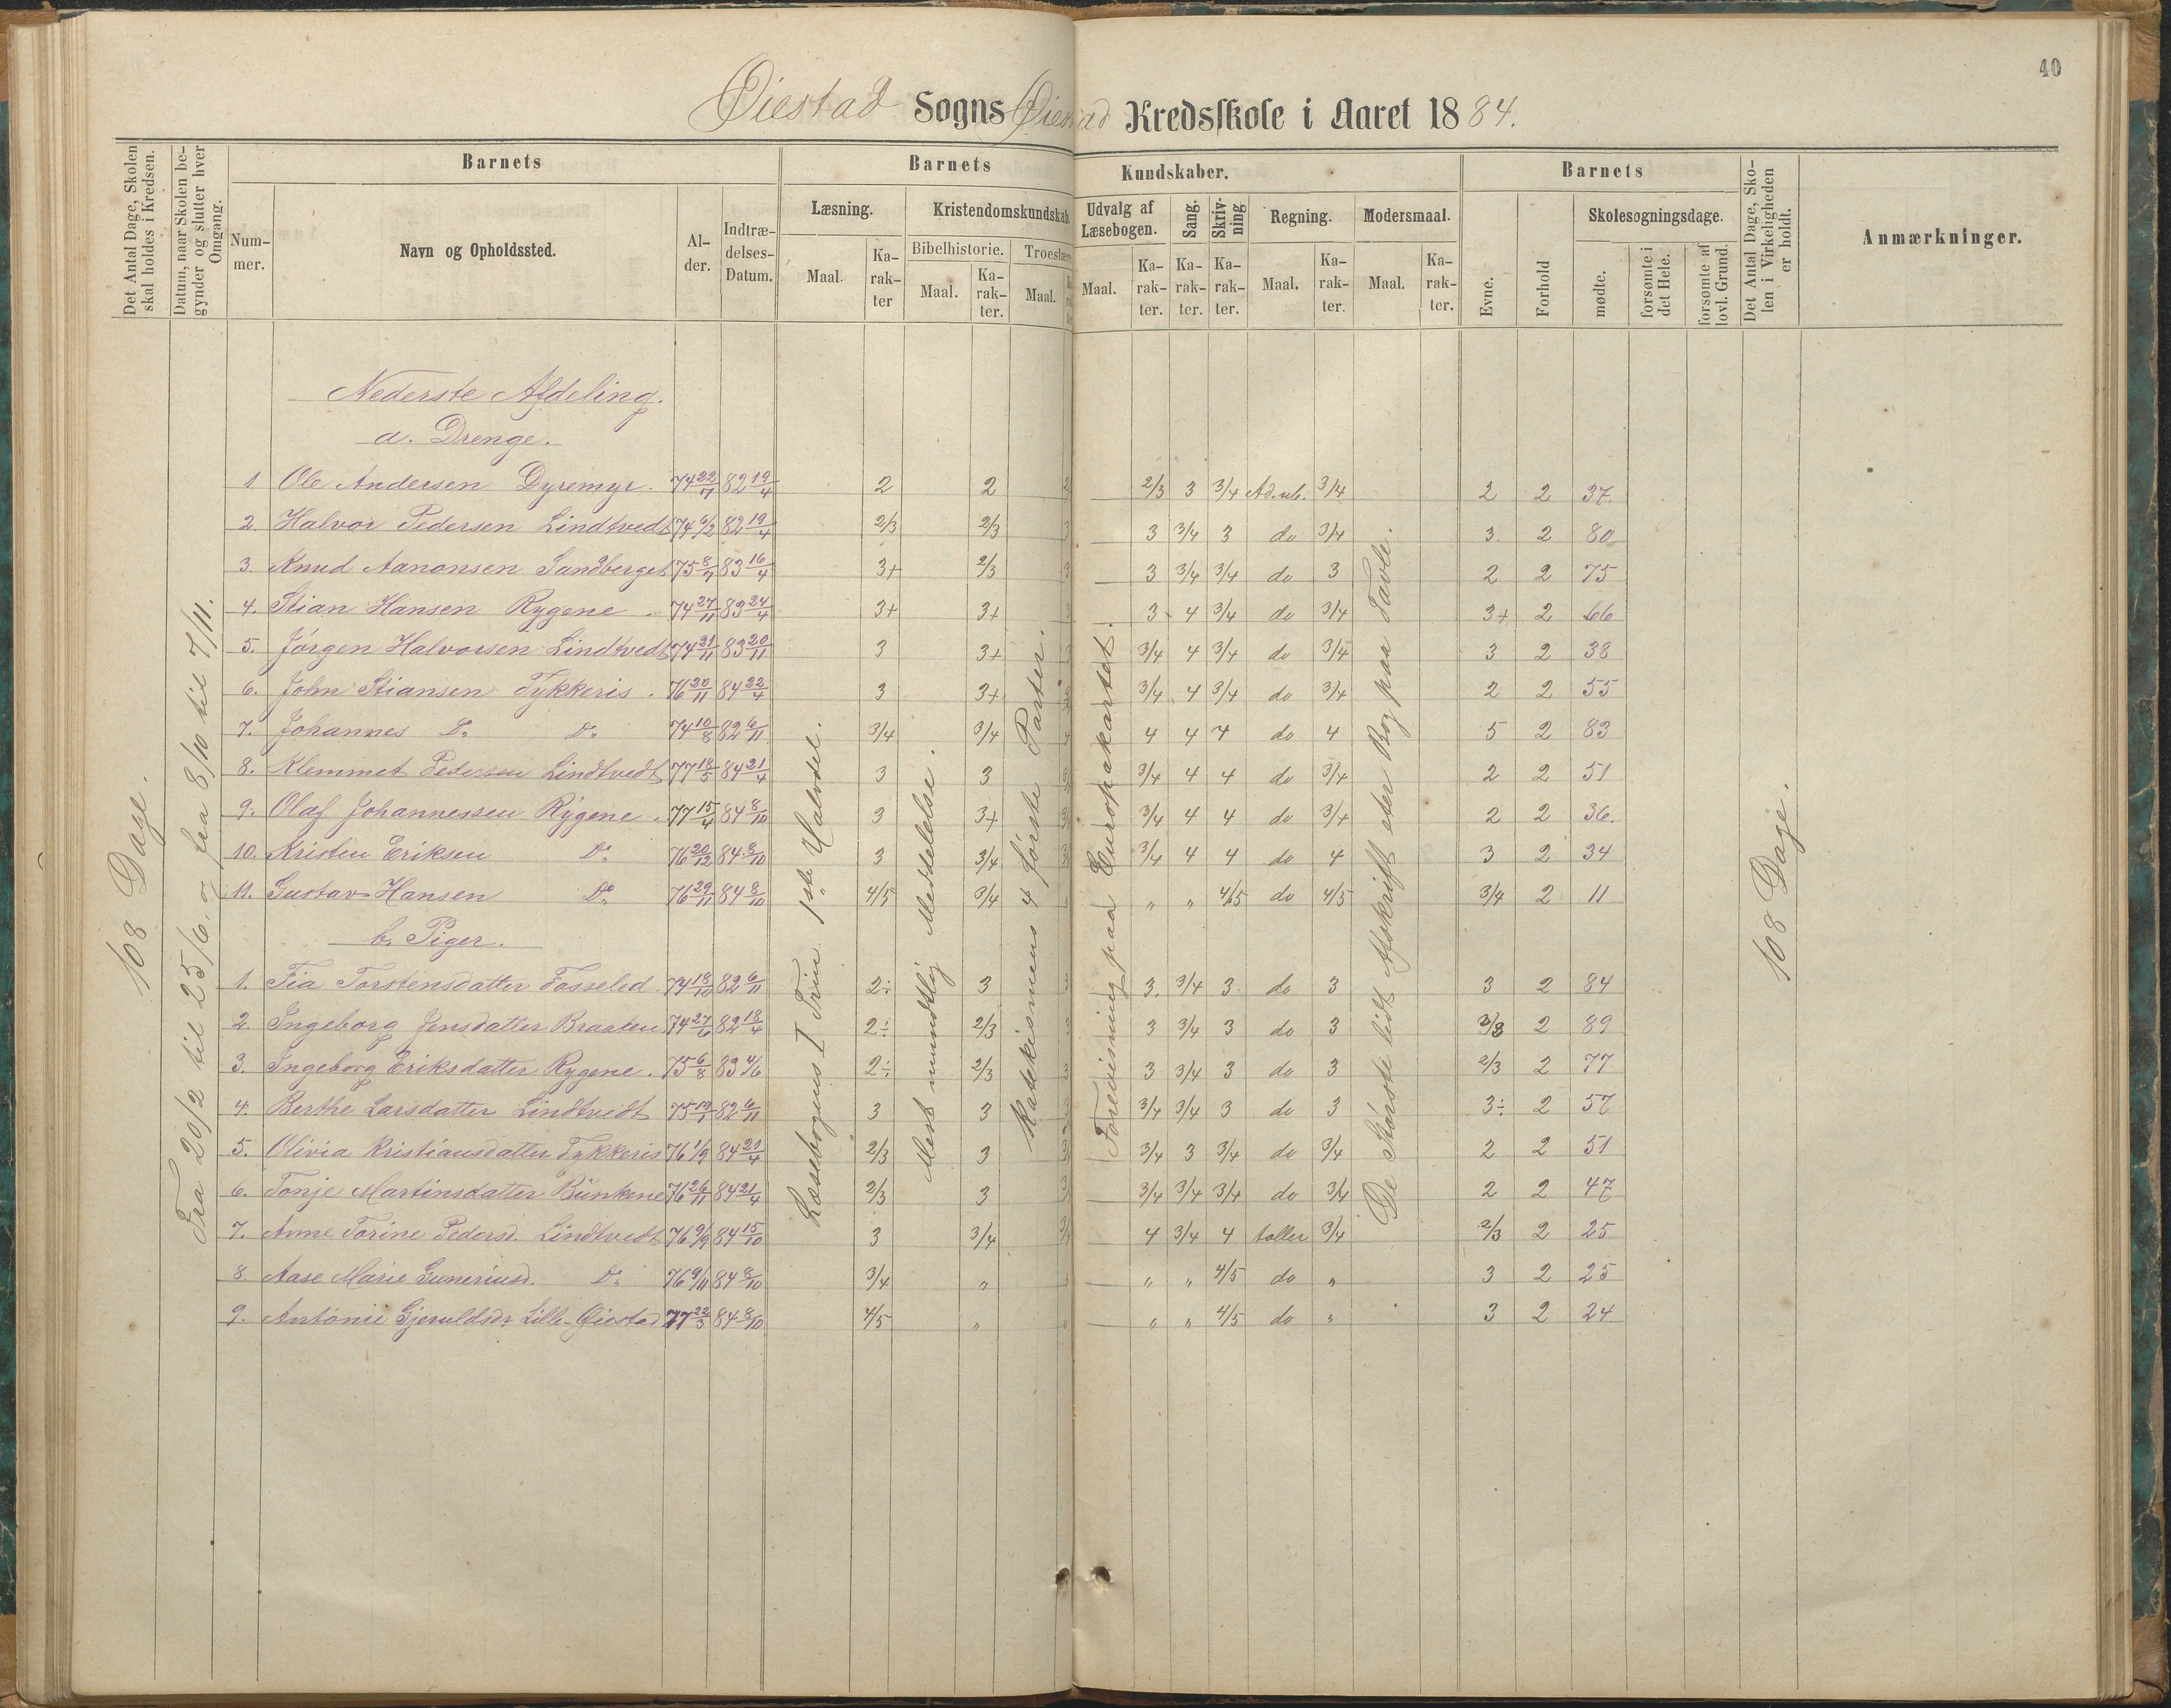 40
Øiestad Sogns Øiestad Kredsskole i Aaret 1884.
Det Antal Dage, Skolen skal holdes i Kredsen.
Datum, naar Skolen begynder og slutter hver Omgang.
Barnets
Nummer.
Navn og Opholdssted.
Alder.
Indtrædelses-Datum.
Barnets Kundskaber.
Læsning.
Maal.
Karakter
Kristendomskundskab.
Bibelhistorie.
Maal.
Karakter.
Troeslære
Maal.
Udvalg af Læsebogen.
Maal.
Karakter.
Sang.
Karakter.
Skrivning
Karakter.
Regning.
Maal.
Karakter.
Modersmaal.
Maal.
Karakter.
Barnets
Evne.
Forhold
Skolesøgningsdage.
mødte.
forsømte i det Hele.
forsømte af lovl. Grund.
Det Antal Dage, Skolen i Virkeligheden er holdt.
Anmærkninger.
108 Dage.
Fra 20/2 til 25/6, og fra 8/10 til 7/11.
Læsebogens I Trin 1ste Halvdel.
Mest mundtlig Meddelelse.
Katekismens 4 første Parter.
Foreviisning paa Europakartet.
De Største lidt Afskrift efter Bog paa Tavle.
108 Dage.
Nederste Afdeling.
a. Drenge.
1 Ole Andersen Dyremyr. 74 22/7 82 19/4 2 2 2/3 3 3/4 Ad. ub. 3/4 2 2 37
2. Halvor Pedersen Lindtvedt 74 6/2 82 19/4 2/3 2/3 3 3 3/4 3 do 3/4 3. 2 80
3. Knud Aanonsen Sandberget 75 8/7 83 16/4 3+ 2/3 3 3 3/4 3/4 do 3 2 2 75
4. Stian Hansen Rygene. 74 27/11 83 24/4 3+ 3+ 3 3 4 3/4 do 3/4 3+ 2 66
5. Jørgen Halvorsen Lindtvedt 74 21/11 83 20/11 3 3+ 3 3/4 4 3/4 do 3/4 3 2 38
6. John Stiansen Tykkeris. 76 20/11 84 22/4 3 3+ 3/4 4 3/4 do 3/4 2 2 55
7. Johannes Do Do 74 10/8 82 6/11 3/4 3/4 4 4 4 4 do 4 5 2 83
8. Klemmet Pedersen Lindtvedt 77 18/5 84 21/4 3 3 3/4 4 4 do 3/4 2 2 51
9. Olaf Johannessen Rygene. 77 15/4 84 8/10 3 3+ 3/4 4 4 do 3/4 2 2 36.
10. Kristen Eriksen Do 76 20/12 84 8/10 3 3/4 3/4 4 4 do 4 3 2 34
11. Gustav Hansen Do 76 29/11 84 8/10 4/5 3/4 " " 4/5 do 4/5 3/4 2 11
b. Piger.
1. Fia Torstensdatter Fosseled. 74 18/10 82 6/11 2÷ 3 3 3. 3/4 3 do 3 3 2 84
2. Ingeborg Jensdatter Braaten 74 27/6 82 18/4 2÷ 2/3 3 3 3/4 3 do 3 2/3 2 89
3. Ingeborg Eriksdatter Rygene. 75 6/8 83 4/6 2÷ 2/3 3 3 3/4 3 do 3 2/3 2 77
4. Berthe Larsdatter Lindtvedt 75 19/1 82 6/11 3 3 3 3/4 3/4 3 do 3 3÷ 2 57
5. Olivia Kristiansdatter Tykkeris 76 1/9 84 21/4 2/3 3 3/4 3 3/4 do 3/4 2 2 51
6. Tonje Martinsdatter Bunkene 76 26/11 84 21/4 2/3 3 3/4 3/4 3/4 do 3/4 2 2 47
7. Anne Torine Pedersd. Lindtvedt 76 9/9 84 15/10 3 3/4 3/4 4 3/4 4 taller 3/4 2/3 2 25
8. Aase Marie Guneriusd. Do 76 9/11 84 8/10 3/4 " " " 4/5 do " 3 2 25
9. Antonie Gjeruldsdr Lille-Øiestad 77 22/3 84 8/10 4/5 " " " " 4/5 do " 3 2 24